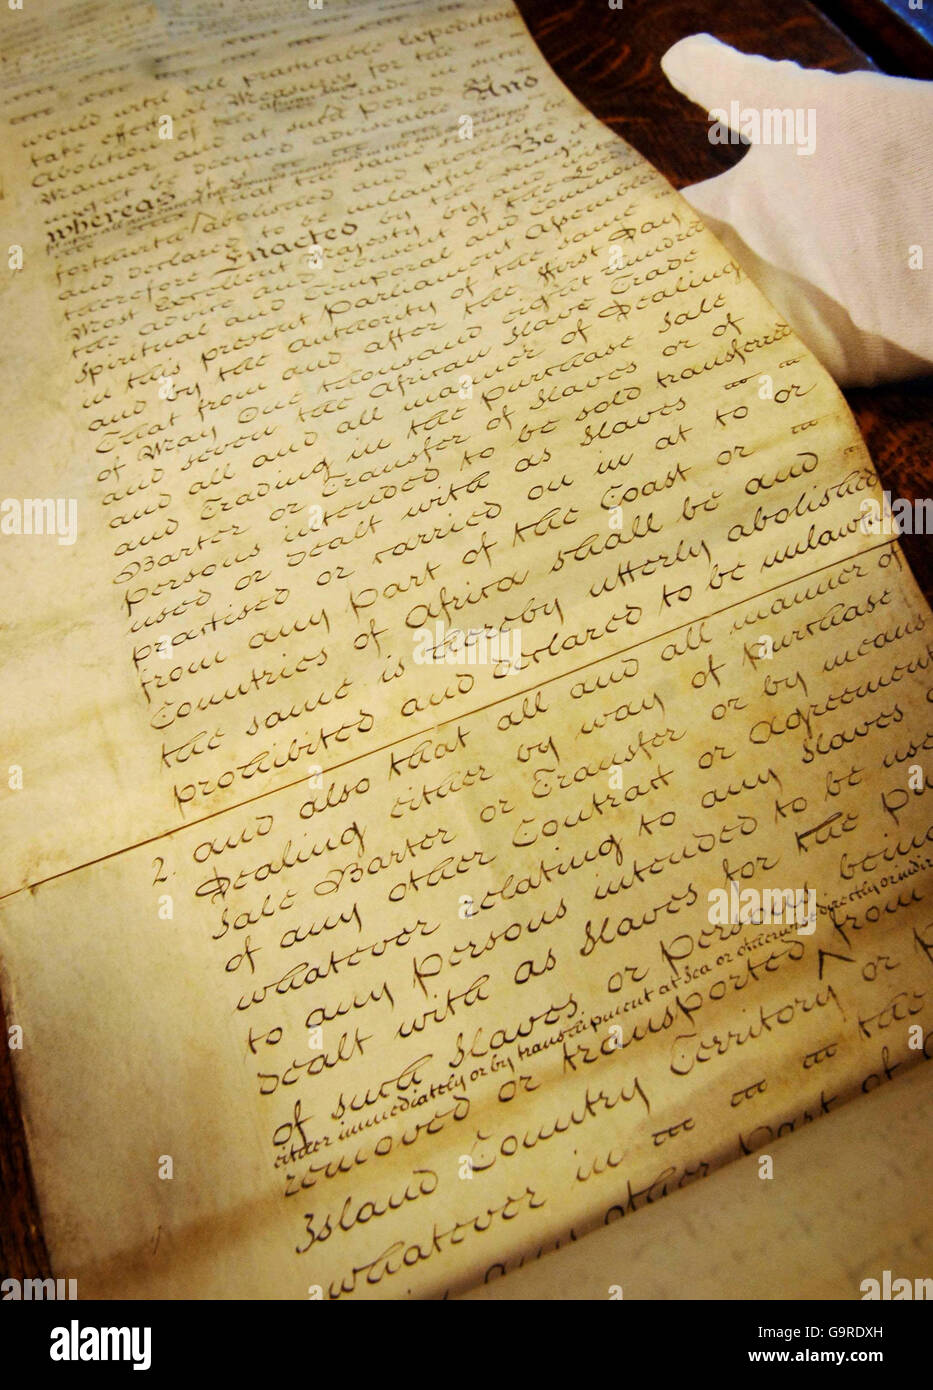 would until all practicable Expedition
take effectual Measures for the
Abolition of the African Slave Trade in such
Manner and at such Period as
might be deemed adviseable And
whereas it is
fit that the same should be
forthwith abolished and prohibited
and declared to be unlawful Be it
therefore Enacted by the King's
Most Excellent Majesty by and with
the Advice and Consent of the Lords
Spiritual and Temporal and Commons
in this present Parliament Assembled
and by the authority of the same
That from and after the first Day
of May One thousand eight hundred
and seven the African Slave Trade
and all and all manner of Dealing
and Trading in the purchase Sale
Barter or Transfer of Slaves or of
persons intended to be sold transferred
used or dealt with as Slaves
practised or carried on in at to or
from any part of the Coast or
Countries of Africa shall be and
the same is hereby utterly abolished
prohibited and declared to be unlawful
2. and also that all and all manner of
Dealing either by way of purchase
Sale Barter or Transfer or by means
of any other Contract or Agreement
whatever relating to any Slaves or
to any persons intended to be used
dealt with as Slaves for the pu
of such Slaves or persons being
either immediately or by transhipment at Sea or otherwise directly or indir
removed or transported from
Island Country Territory or p
whatever in the
any other part of
alamy stock photo
G9RDXH
www.alamy.com